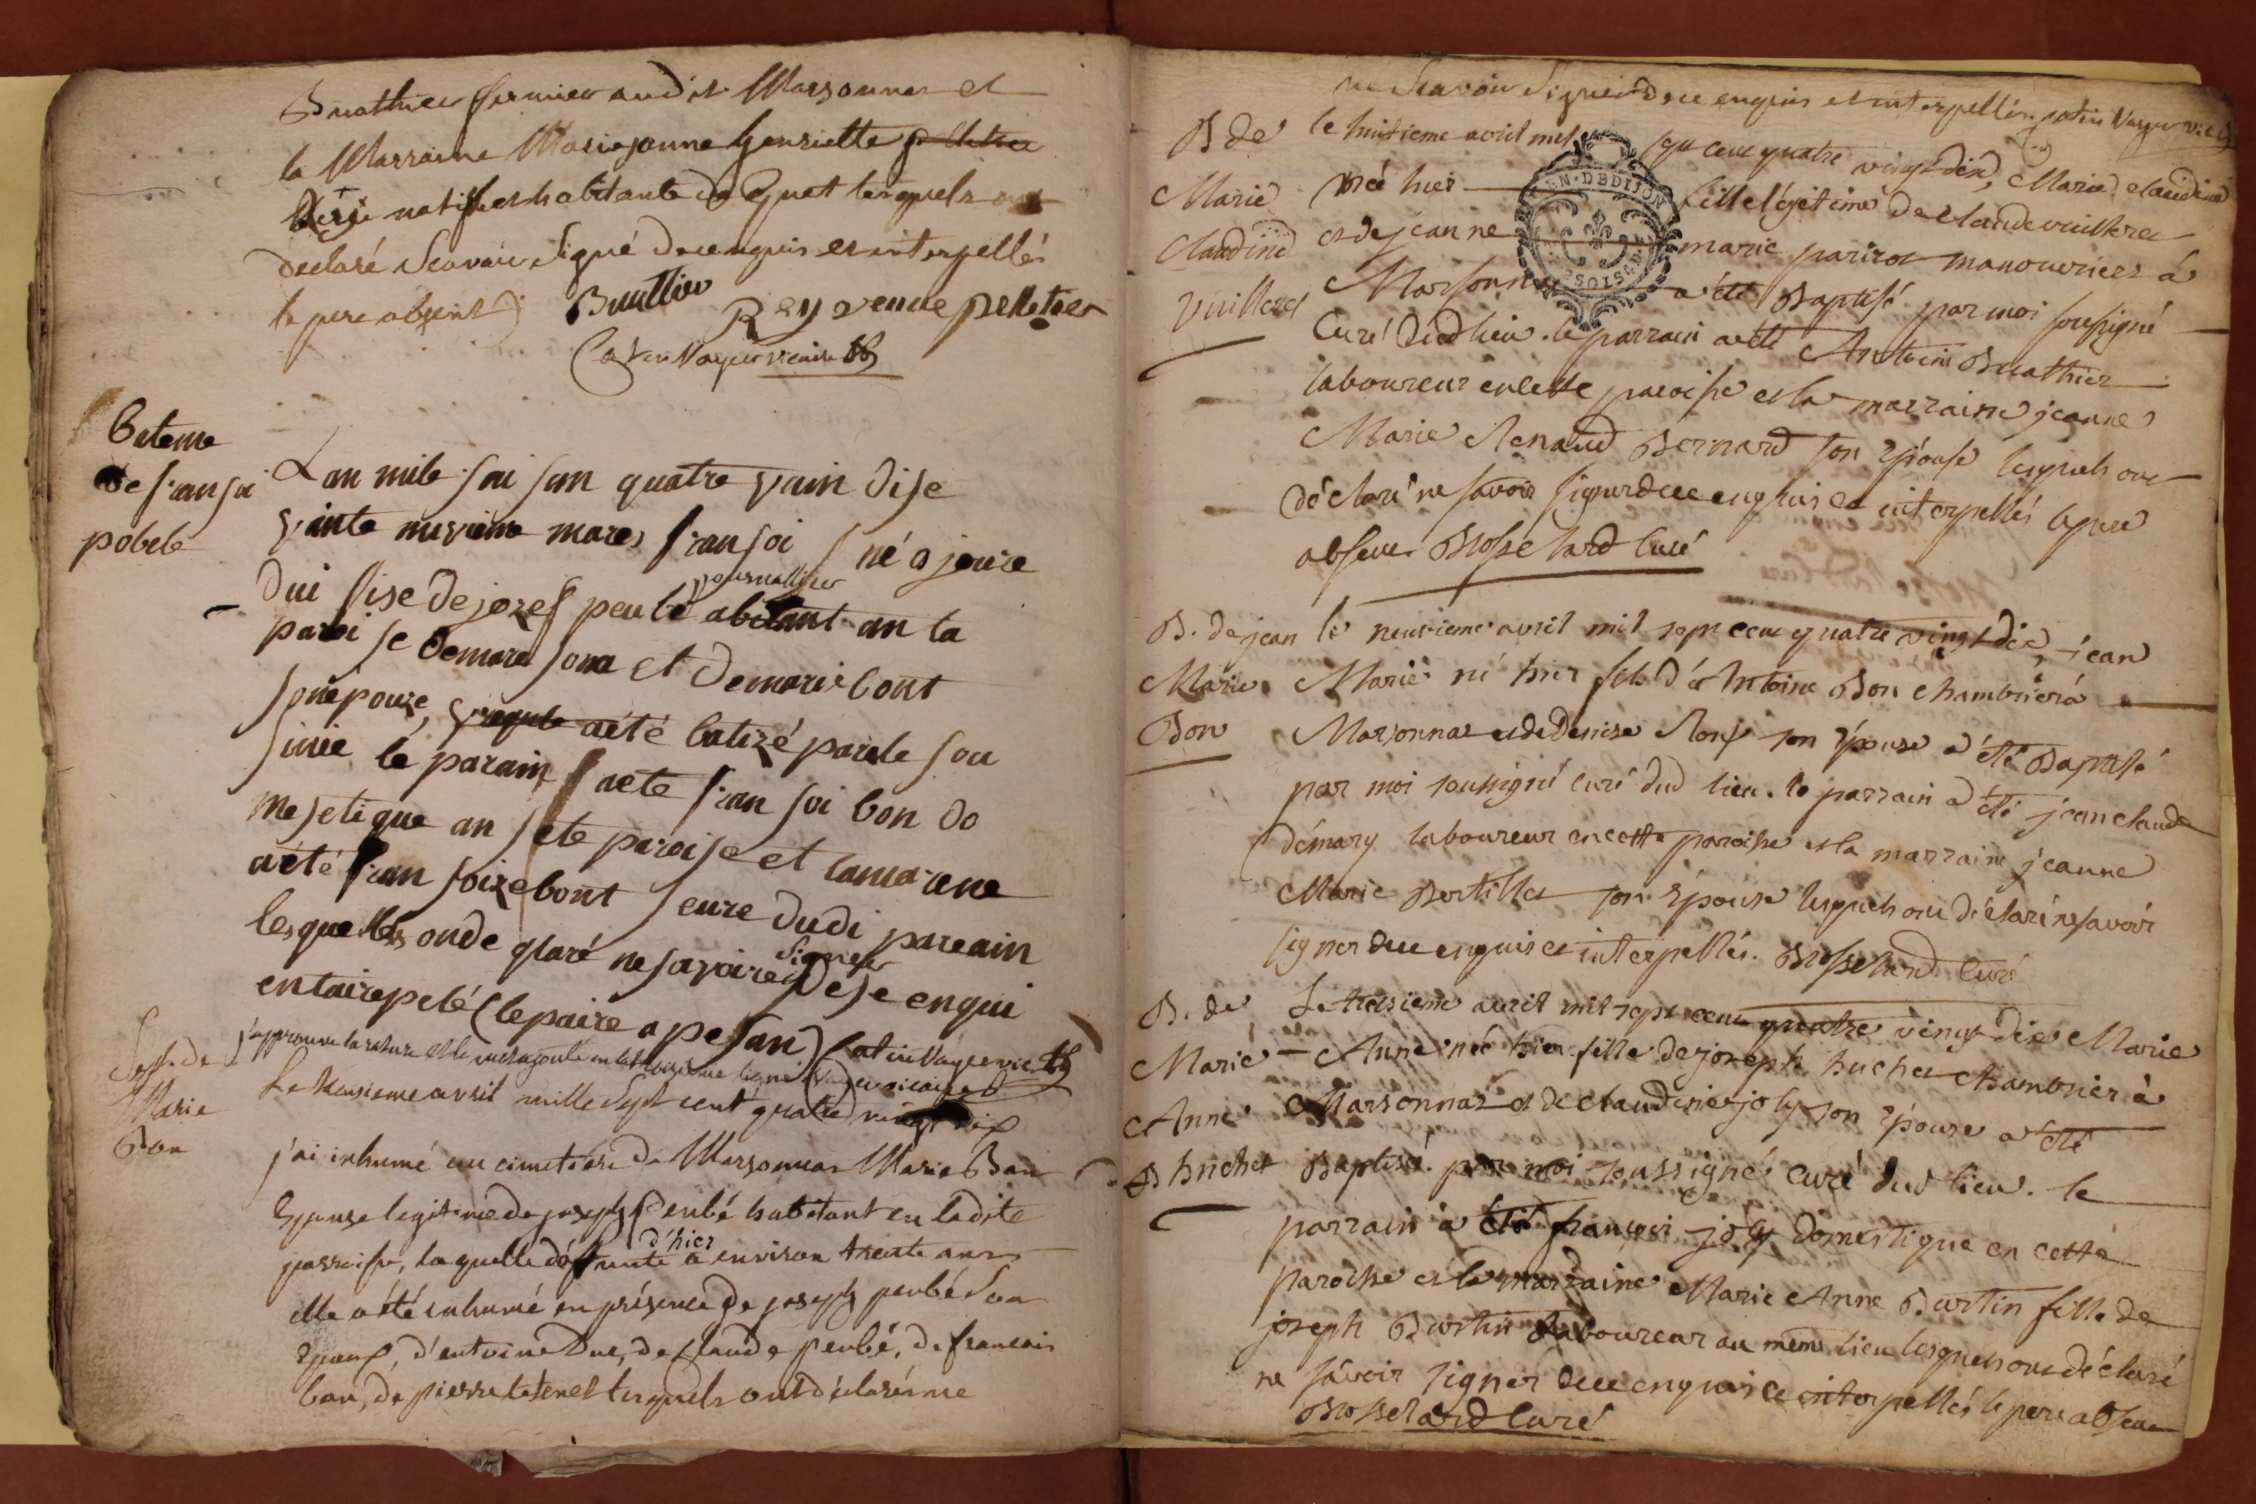 Buathier fermier audit Marsonnas et
la Marraine Marie janne henriette pelletier
native et habitante de Cuet lesquels ont
declaré scavoir signé de ce enquis et interpellés
le pere absent
Buattier
Rey veuve pelletier
Catin Vayer vicaire
bateme
de fransoi
pobele
Lan mile sai san quatre vain dise
vainte nuvieme mares fransoi né o joure
dui fise de jozef peulé journallier abitant an la
paroi se de maresona et de marie bont
son epouze, a été batizé par le sou
sinié le parain aete fransoi bon do
mesetique an sete paroise et la marene
aété fransoize bont seure dudi pareain
lesquelles on de qlaré ne savoire signer de se enqui
entairepelé (le paire apesan) Catin Vayer vic.
j'approuve la rature et le mot ajouté vicaire
Sept. de
Marie
Bon
Le avril mille sept cent quatre vingt dix
j'ai inhumé au cimetiere de Marsonnas Marie Bon
Epouse legitime de joseph Peubé habitant en la dite
parroisse, laquelle défunte d'hier a environ trente ans
elle a été inhumé en présence de joseph peubé son
Epoux, d'entoine Duc, de Claude peubé, de francois
bon, de pierre lesquels ont déclaré ne
ne Scavoir Signer de ce enquis et interpellés Catin Vayer vic.
B de
Marie
Claudine
Vuilleret
le huitieme avril mil sept cent quatre vingt dix, Marie claudine
née hier fille légitime de claude vuilleret
et de jeanne marie pariot manouvriers à
Marsonnas a été Baptisé par moi soussigné
EN·DEDIJON
curé dud lieu. le parrain a été Antoine Buathier
laboureur en cette paroisse et la marraine jeanne
Marie Renaud Bernard son épouse lesquels ont
déclaré ne savoir signer de ce enquis et interpellés le pere
absent Brosselard curé
B. de jean
Marie
Bon
le neuvieme avril mil sept cent quatre vingt dix, jean
Marie né hier fils d'Antoine Bon chambrier à
Marsonnas et de Denise Roux son épouse a été Baptisé
par moi soussigné curé dud lieu. le parrain a été jean claude
démary laboureur en cette paroisse et la marraine jeanne
Marie Bertillet son épouse lesquels ont déclaré ne savoir
signer de ce enquis et interpellés. Brosselard curé
B. de
Marie
Anne
huchet
Le treisieme avril mil sept cent quatre vingt dix Marie
Anne née hier fille de joseph huchet chambrier à
Marsonnas et de claudine joly son épouse a été
Baptisé par moi soussigné curé dud lieu. le
parrain a été françois joly domestique en cette
paroisse et la marraine Marie Anne Burtin fille de
joseph Burtin laboureur au meme lieu lesquels ont déclaré
ne sávoir signer de ce enquis et interpellés le pere absent
Brosselard curé